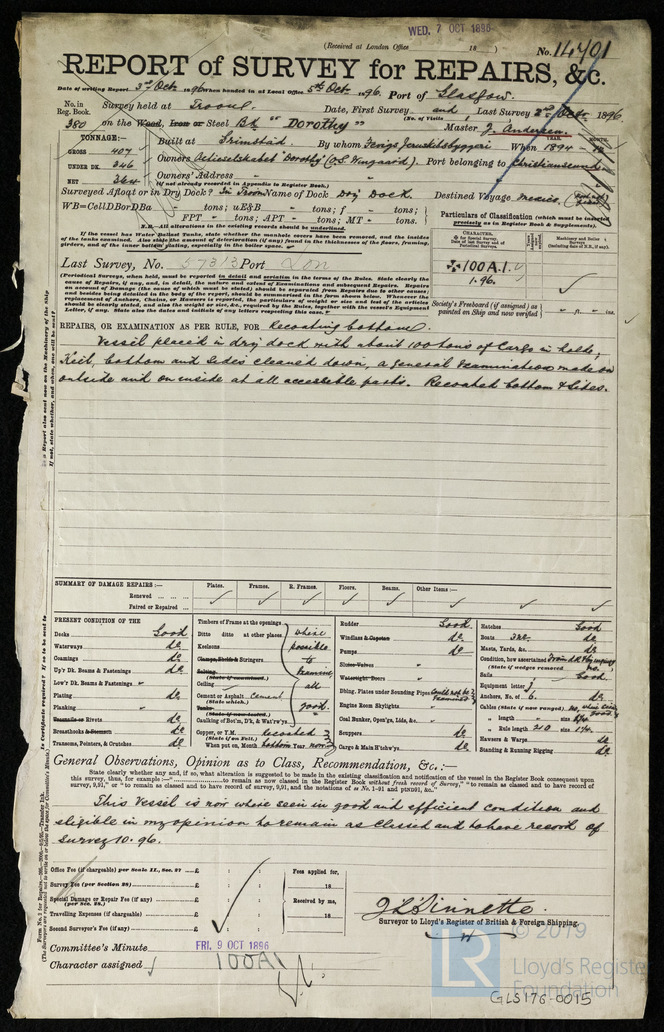 WED. 7 OCT 1896
(Received at London Office 18 )
No. 14701
REPORT of SURVEY for REPAIRS, &c.
Date of writing Report 3rd Oct 1896 When handed in at Local Office 5th Oct 1896 Port of Glasgow.
No. in Reg. Book. Survey held at Troon. Date, First Survey and Last Survey 2nd Oct 1896
(No. of Visits )
380 on the Wood, Iron or Steel Bk "Dorothy" Master J. Andersen.
TONNAGE:—
GROSS 407
UNDER DK. 346
NET 364
Built at Grimstad. By whom When 1894
YEAR. MONTH
Owners Actieselskabet "Dorothy" Port belonging to Christianssund
Owners' Address
(If not already recorded in Appendix to Register Book.)
Surveyed Afloat or in Dry Dock? In Troon Name of Dock Dry Dock. Destined Voyage Mexico.
WB=CellDBorDBa tons; uE&B tons; f tons;
FPT tons; APT tons; MT tons.
N.B.—All alterations in the existing records should be underlined.
If the vessel has Water Ballast Tanks, state whether the manhole covers have been removed, and the insides
of the tanks examined. Also state the amount of deterioration (if any) found in the thicknesses of the floors, framing,
girders, and of the inner bottom plating, especially in the boiler space.
Particulars of Classification (which must be inserted
precisely as in Register Book & Supplements).
CHARACTER.
Machinery and Boiler Surveys
(including date of N.E., if any).
100A.1.
1.96.
Last Survey, No. 57313 Port Lon
(Periodical Surveys, when held, must be reported in detail and seriatim in the terms of the Rules. State clearly the
cause of Repairs, if any, and, in detail, the nature and extent of Examinations and subsequent Repairs. Repairs
on account of Damage (the cause of which must be stated) should be separated from Repairs due to other causes;
and besides being detailed in the body of the report, should be summarised in the form shown below. Whenever the
replacement of Anchors, Chains, or Hawsers is reported, the particulars of weight or size and test of the articles
should be clearly stated, and also the weight or size, &c., required by the Rules, together with the vessel's Equipment
Letter, if any. State also the dates and initials of any letters respecting this case.
Society's Freeboard (if assigned) as
painted on Ship and now verified ft. ins.
REPAIRS, OR EXAMINATION AS PER RULE, FOR Recoating bottom.
Vessel placed in dry dock with about 100 tons of Cargo in holds;
Keel, bottom and sides cleaned down, a general examination made on
outside and on inside at all accessible parts. Recoated bottom & sides.
SUMMARY OF DAMAGE REPAIRS:— Plates. Frames. R. Frames. Floors. Beams. Other Items:—
Renewed
Faired or Repaired
PRESENT CONDITION OF THE
Decks Good
Waterways do
Coamings do
Up'r Dk. Beams & Fastenings do
Low'r Dk. Beams & Fastenings "
Plating do
Planking "
Treenails or Rivets do
Breasthooks & Stemson do
Transoms, Pointers, & Crutches do
Timbers of Frame at the openings
Ditto ditto at other places.
Keelsons
Clamps, Shelfs & Stringers
Salting
(State if examined.)
Ceiling
Cement or Asphalt Cement
(State which.)
Tanks
(State if now tested.)
Caulking of Bot'm, D'k, & Wat'rw'ys
where
possible
to
examine
all
good.
Copper, or Y.M. recoated
(State if on Felt.)
When put on, Month bottom Year now
Rudder Good.
Windlass & Capstan do
Pumps do
Sluice Valves "
Watertight Doors "
Dbling. Plates under Sounding Pipes could not be examined
Engine Room Skylights
Coal Bunker, Open'gs, Lids, &c.
Scuppers do
Cargo & Main H'tchw'ys. do
Hatches Good
Boats 3 do
Masts, Yards, &c. do
Condition, how ascertained
(State if wedges removed no.
Sails Good
Equipment letter J
Anchors, No. of 6. do
Cables (State if now ranged) no
" length " size
" Rule length 210 size
Hawsers & Warps do
Standing & Running Rigging do
General Observations, Opinion as to Class, Recommendation, &c.:—
State clearly whether any, and if so, what alteration is suggested to be made in the existing classification and notification of the vessel in the Register Book consequent upon
this survey, thus, for example:—" to remain as now classed in the Register Book without fresh record of Survey," "to remain as classed and to have record of
survey, 9,91," or "to remain as classed and to have record of survey, 9,91, and the notations of ss No. 1–91 and ptND91, &c."
This Vessel is now where seen in good and efficient condition and
eligible in my opinion to remain as Classed and to have record of
Survey 10.96.
Office Fee (if chargeable) per Scale II., Sec. 27 £ : :
Survey Fee (per Section 28) £ : :
Special Damage or Repair Fee (if any)
(per Sec. 28.) £ : :
Travelling Expenses (if chargeable) £ : :
Second Surveyor's Fee (if any) £ : :
Fees applied for,
18
Received by me,
18
Surveyor to Lloyd's Register of British & Foreign Shipping.
Committee's Minute FRI. 9 OCT 1896
Character assigned 100A1
LR
© 2019
Lloyd's Register
Foundation
GLS176-0015